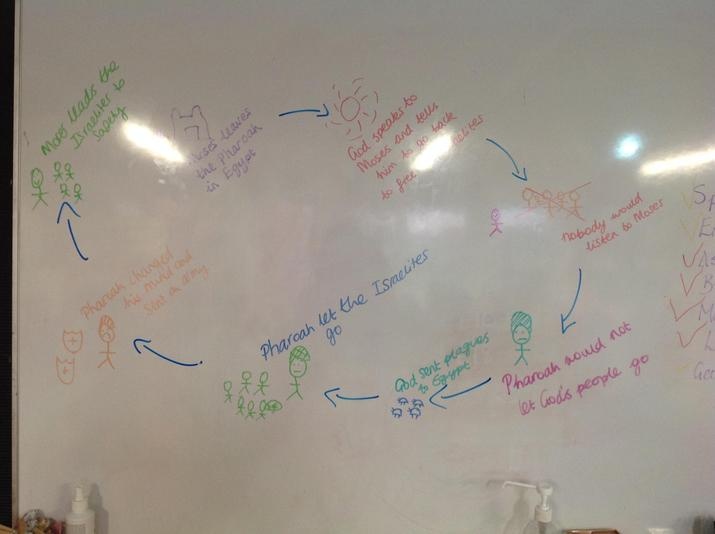 Moses leaves
the Pharoah
in Egypt
God speaks to
Moses and tells
him to go back
to free
nobody would
listen to Moses
Pharoah would not
let God's people go
God sent plagues
to Egypt
Pharoah let the Israelites
go
Pharoah changed
his mind and
sent an army
Moses leads the
Israelites to
safety